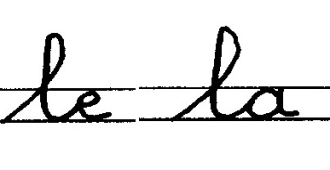 le la